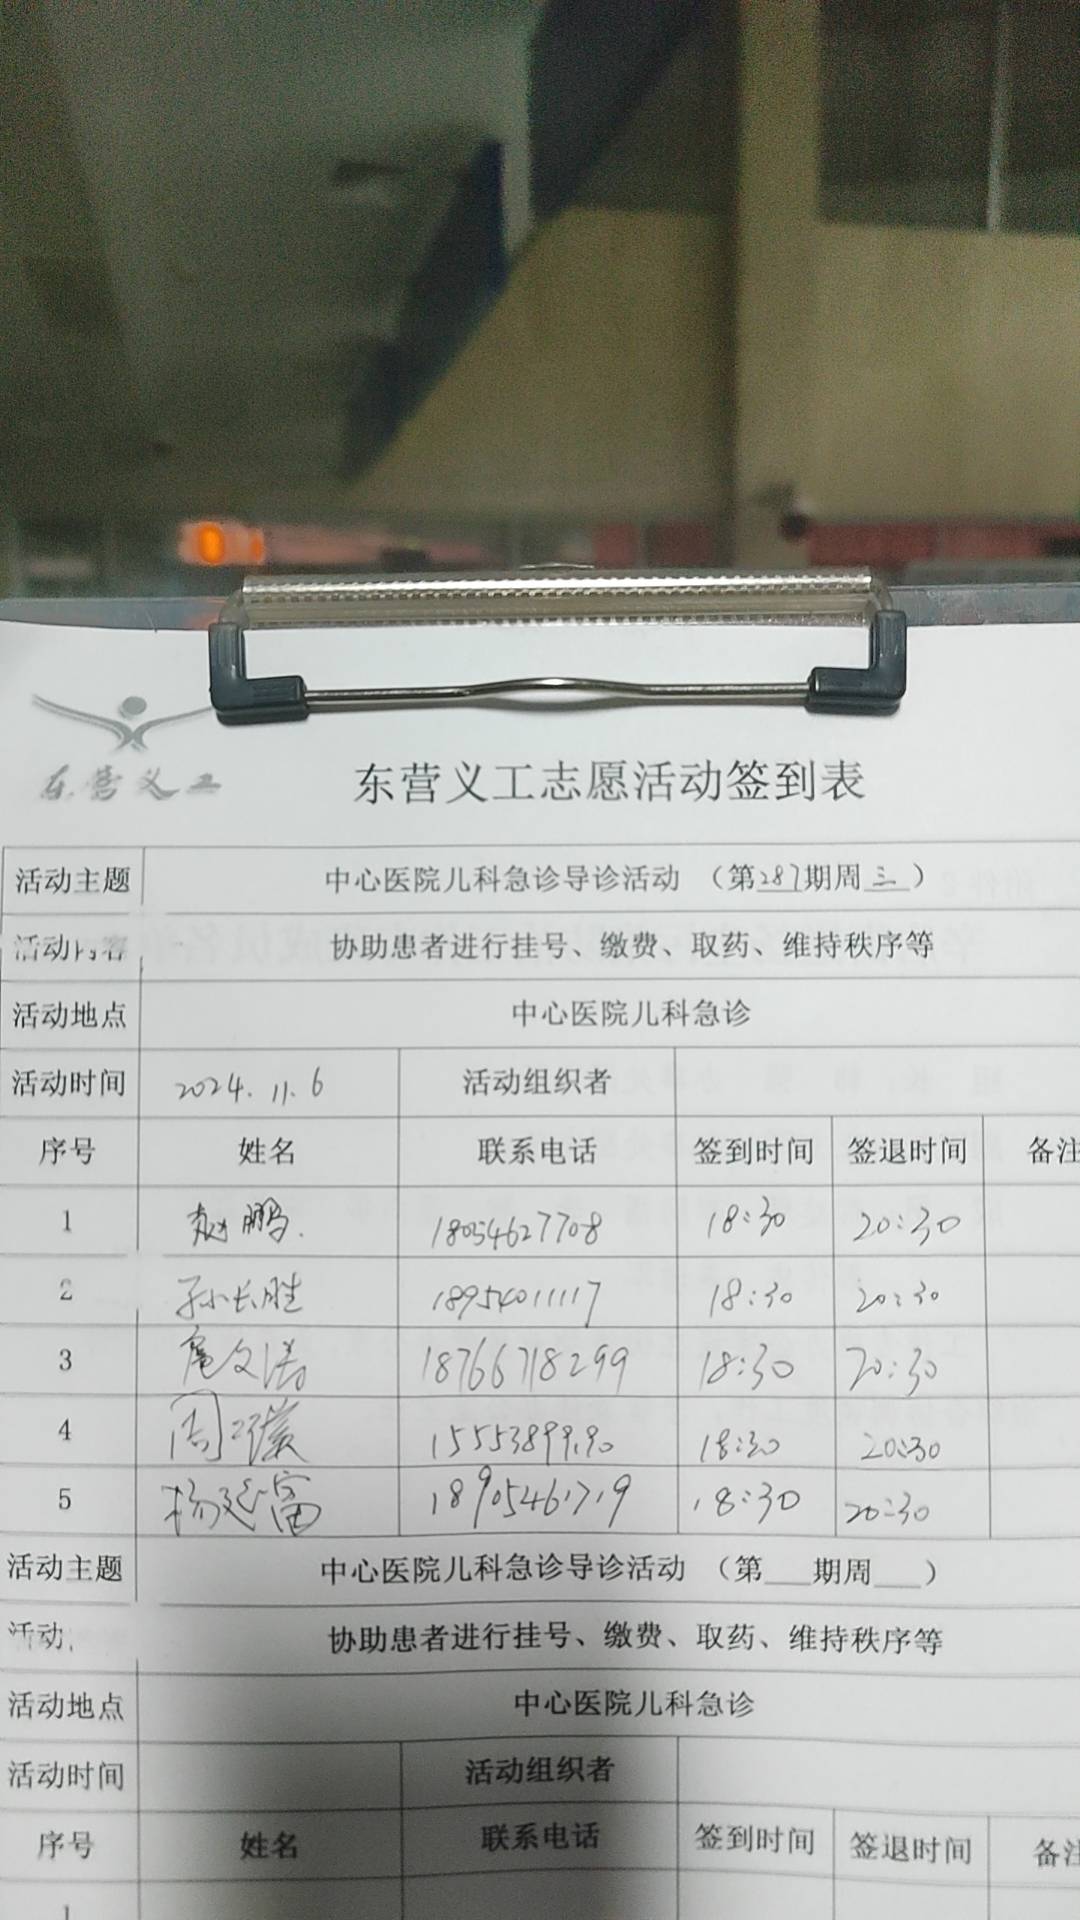 东营义工
东营义工志愿活动签到表
活动主题 中心医院儿科急诊导诊活动 （第287期周三）
活动内容 协助患者进行挂号、缴费、取药、维持秩序等
活动地点 中心医院儿科急诊
活动时间 2024.11.6 活动组织者
序号 姓名 联系电话 签到时间 签退时间 备注
1 赵鹏. 18054627708 18:30 20:30
2 孙长胜 18954011117 18:30 20:30
3 18766718299 18:30 20:30
4 周 18:30 20:30
5 杨延富 18:30 20:30
活动主题 中心医院儿科急诊导诊活动 （第___期周___）
活动 协助患者进行挂号、缴费、取药、维持秩序等
活动地点 中心医院儿科急诊
活动时间 活动组织者
序号 姓名 联系电话 签到时间 签退时间 备注
1